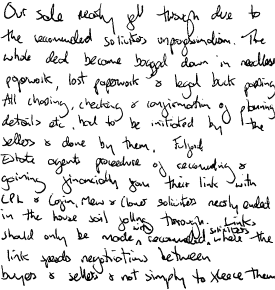 Our sale nearly fell through due to
the recommended solicitors unprofessionalism. The
whole deal became bogged down in needless
paperwork, lost paperwork & legal buck passing
All chasing, checking & confirmation of planning
details etc, had to be initiated by the
sellers & done by them,
Estate agents procedure of recommending &
gaining financially from their link with
& Cloves solicitors nearly ended
in the house sail falling through. Links
should only be made, with recommended solicitors where the
link speeds negotiations between
buyers & sellers & not simply to fleece them